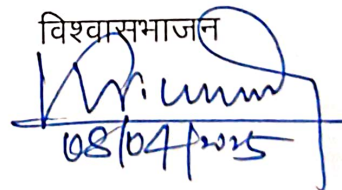 विश्वासभाजन
08/04/2025